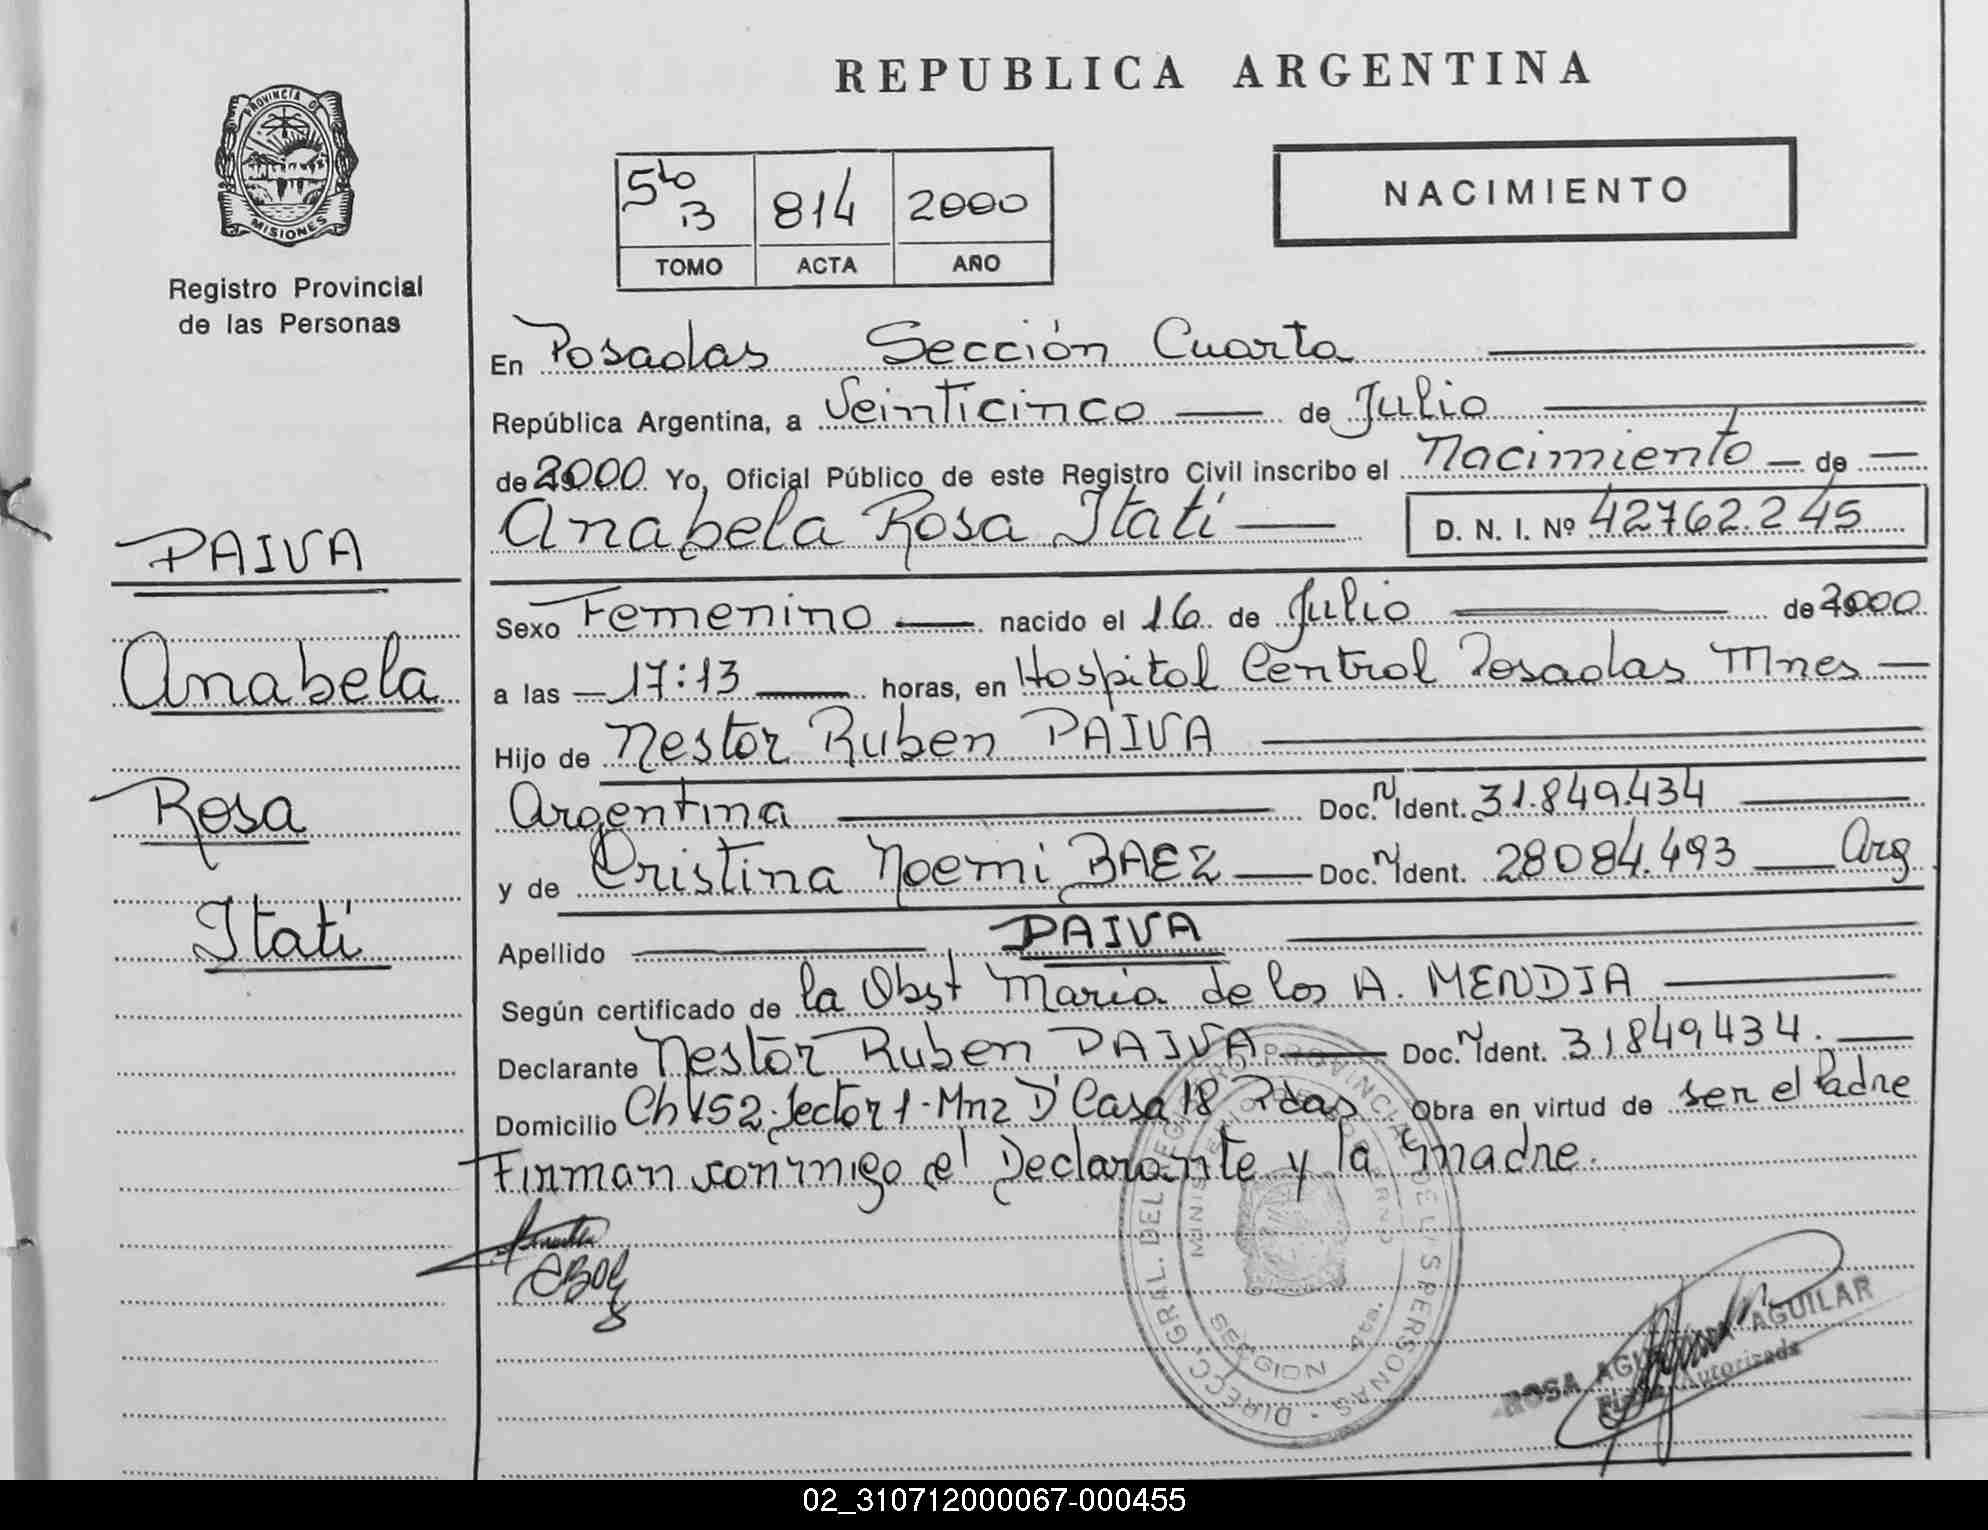 REPUBLICA ARGENTINA
PROVINCIA D
MISIONES
Registro Provincial
de las Personas
5to B 814 2000
TOMO ACTA AÑO
NACIMIENTO
En Posadas Sección Cuarta
República Argentina, a Veinticinco de Julio
de 2000 Yo, Oficial Público de este Registro Civil inscribo el Nacimiento de
Anabela Rosa Itatí D. N. I. Nº 42762.245
PAIVA
Anabela
Rosa
Itatí
Sexo Femenino nacido el 16 de Julio de 2000
a las 17:13 horas, en Hospital Central Posadas Mnes
Hijo de Nestor Ruben PAIVA
Argentina Doc. N Ident. 31.849.434
y de Cristina Noemi BAEZ Doc. N Ident. 28084.493 Arg
Apellido PAIVA
Según certificado de la Obst Maria de los A. MENDIA
Declarante Nestor Ruben PAIVA Doc. N Ident. 31849434.
Domicilio Ch 152. Sector 1- Mnz D' Casa 18 Pdas Obra en virtud de ser el Padre
Firman conmigo el Declarante y la madre.
CBaez
DIRECC. GRAL. DEL REGISTRO PROVINCIAL DE LAS PERSONAS
MINISTERIO DE GOBIERNO
SECCION 4ta.
ROSA AGUILAR
Firma Autorizada
02_310712000067-000455